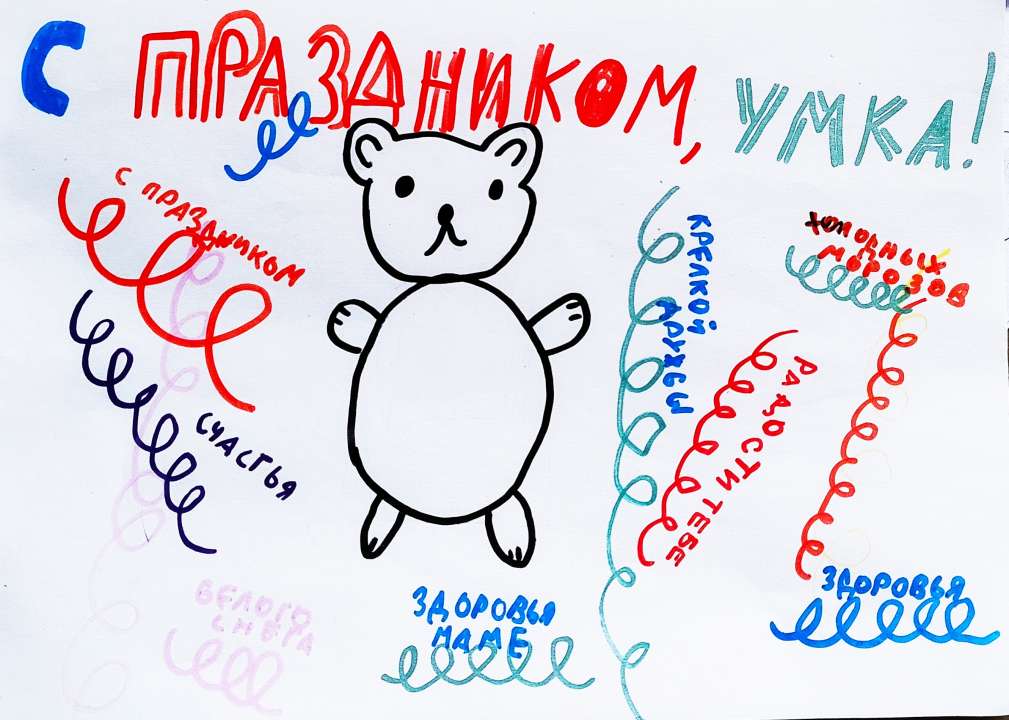 С ПРАЗДНИКОМ, УМКА!
С ПРАЗДНИКОМ
СЧАСТЬЯ
БЕЛОГО
СНЕГА
ЗДОРОВЬЯ
МАМЕ
КРЕПКОЙ
ДРУЖБЫ
РАДОСТИ ТЕБЕ
ХОЛОДНЫХ
МОРОЗОВ
ЗДОРОВЬЯ